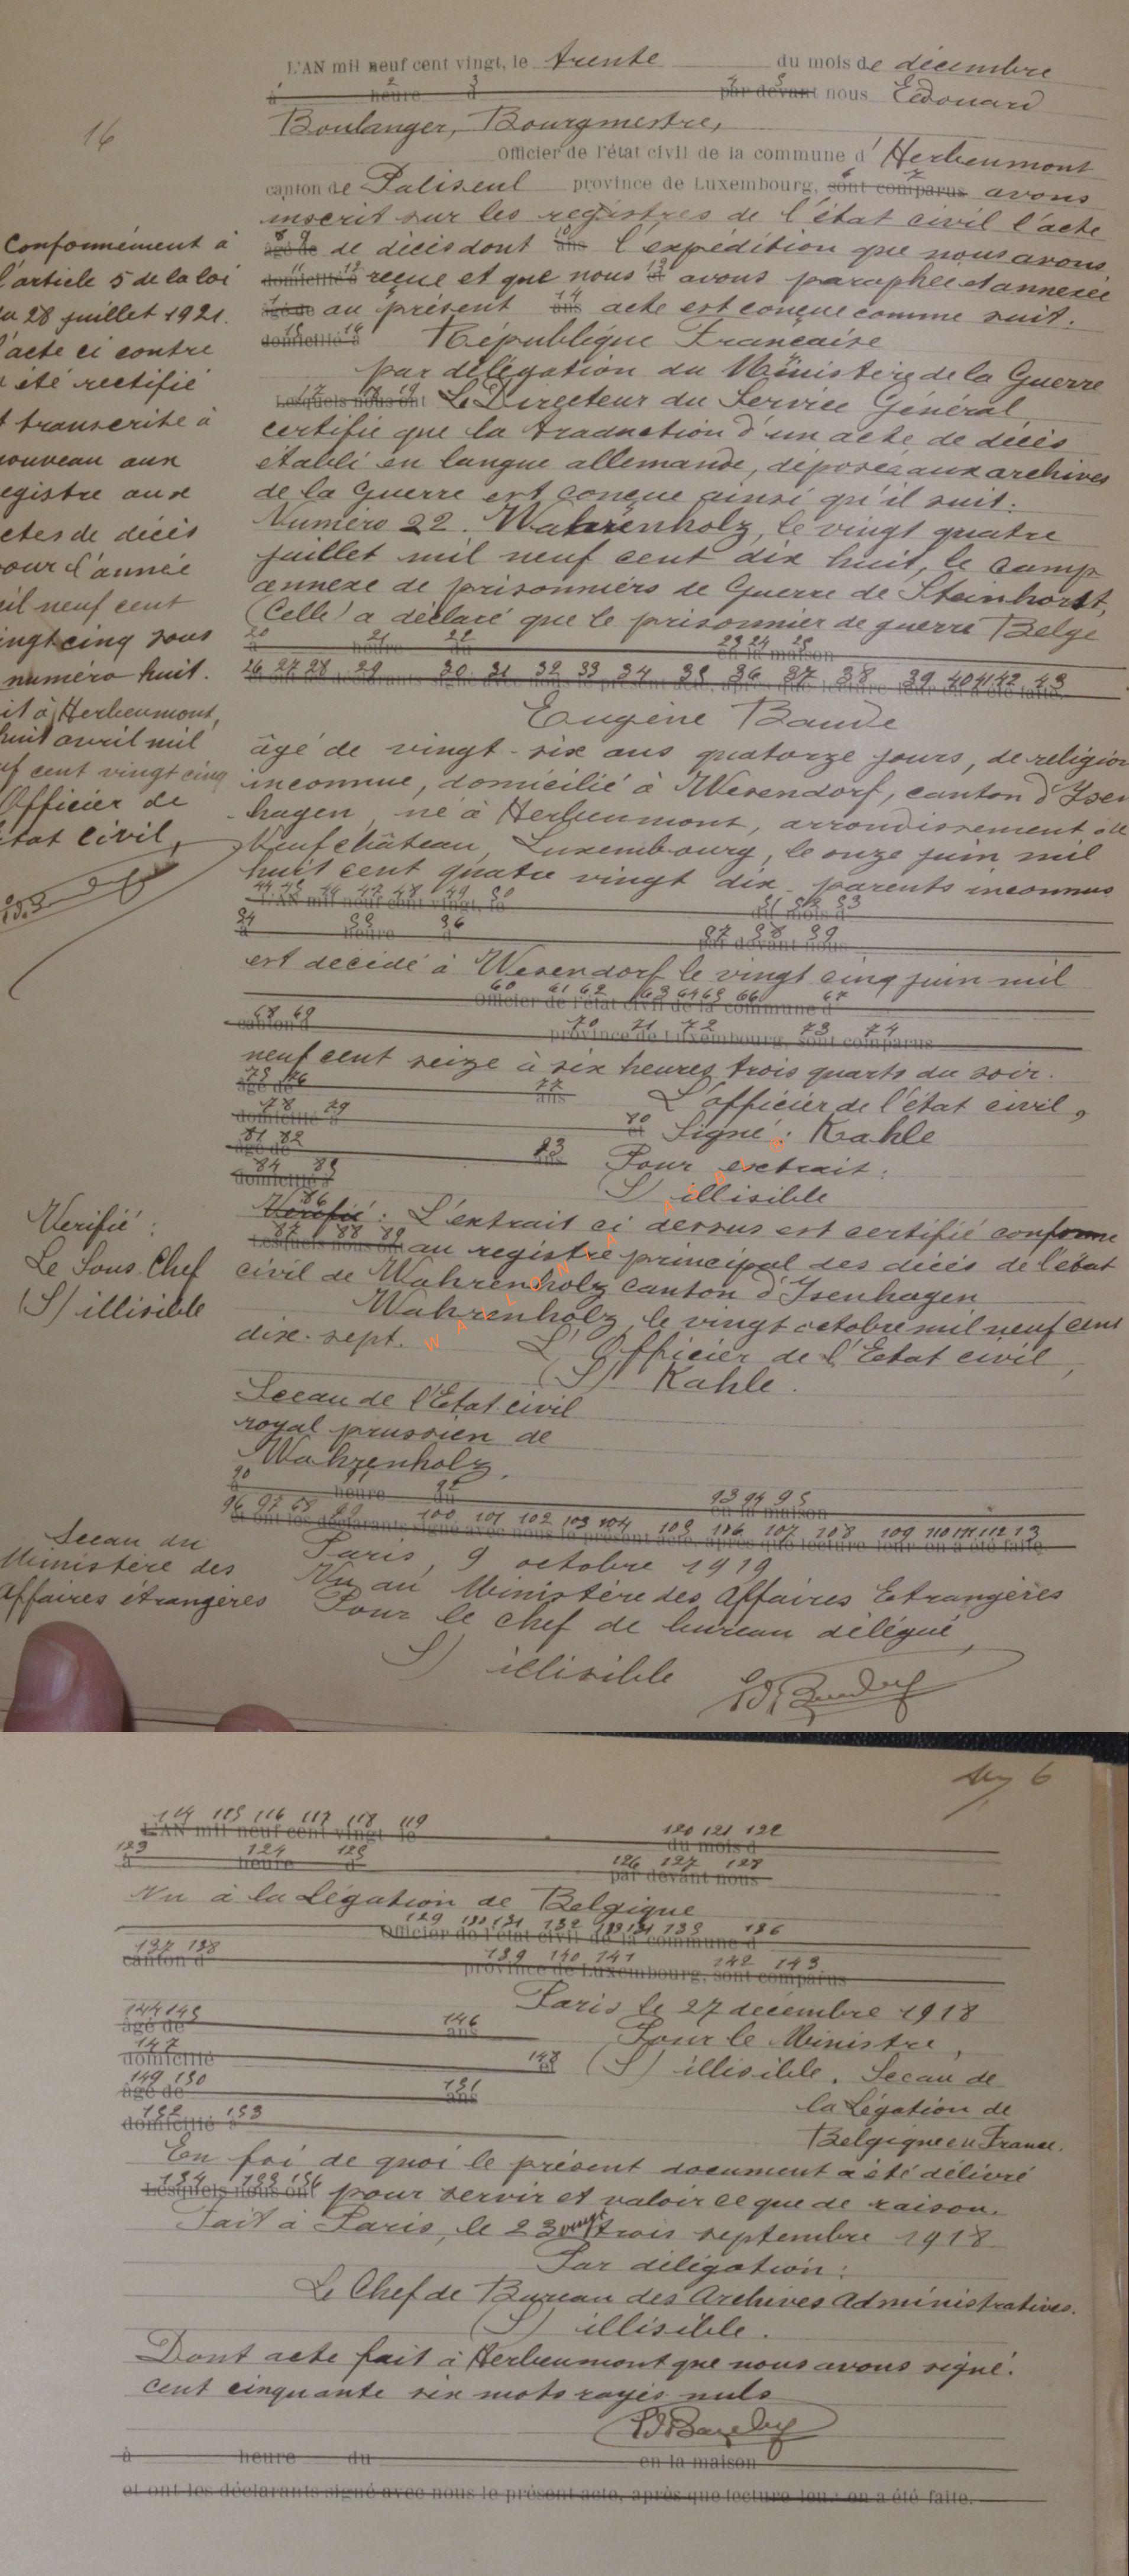 L'AN mil neuf cent vingt, le trente du mois de décembre
à heure d par devant nous Edouard
Boulanger, Bourgmestre,
16
Officier de l'état civil de la commune d'Herbeumont
canton de Paliseul province de Luxembourg, sont comparus avons
inscrit sur les registres de l'état civil l'acte
âgé de de décès dont ans l'expédition que nous avons
domicilié à reçue et que nous et avons paraphée et annexée
âgé de au présent ans acte est conçue comme suit.
domicilié à République Française
par délégation du Ministère de la Guerre
Lesquels nous ont Le Directeur du Service Général
certifie que la traduction d'un acte de décès
établi en langue allemande, déposée aux archives
de la Guerre est conçue ainsi qu'il suit:
Numéro 22. Wahrenholz, le vingt quatre
juillet mil neuf cent dix huit, le camp
annexe de prisonniers de Guerre de Steinhorst,
(Celle) a déclaré que le prisonnier de guerre Belge
20 21 22 23 24 25
à heure du en la maison
26 27 28 29 30 31 32 33 34 35 36 37 38 39 40 41 42 43
Eugène Baude
âgé de vingt-six ans quatorze jours, de religion
inconnue, domicilié à Wesendorf, canton d'Isen
hagen, né à Herbeumont, arrondissement de
Neufchâteau, Luxembourg, le onze juin mil
huit cent quatre vingt dix - parents inconnus
44 45 46 47 48 49 50 51 52 53
L'AN mil neuf cent vingt, le du mois d
54 55 56 57 58 59
à heure d par devant nous
est décédé à Wesendorf le vingt cinq juin mil
60 61 62 63 64 65 66 67
Officier de l'état civil de la commune d
68 69 70 71 72 73 74
canton d province de Luxembourg, sont comparus
neuf cent seize à six heures trois quarts du soir.
75 76 77
âgé de ans L'officier de l'état civil,
78 79 80
domicilié à et Signé: Kahle
81 82 83
âgé de ans Pour extrait:
84 85
domicilié à (S) illisible
86
Vérifié: L'extrait ci dessus est certifié conforme
87 88 89
Lesquels nous ont au registre principal des décès de l'état
civil de Wahrenholz canton d'Isenhagen
Wahrenholz, le vingt octobre mil neuf cent
dix-sept. L'Officier de l'Etat civil,
(S) Kahle.
Sceau de l'Etat civil
royal prussien de
Wahrenholz.
90 91 92 93 94 95
à heure du en la maison
96 97 98 99 100 101 102 103 104 105 106 107 108 109 110 111 112 13
et ont les déclarants signé avec nous le présent acte, après que lecture leur en a été faite.
Paris, 9 octobre 1919
Vu au Ministère des Affaires Etrangères
Pour le chef de bureau délégué,
S) illisible
Conformément à
l'article 5 de la loi
du 28 juillet 1921.
l'acte ci contre
a été rectifié
et transcrite à
nouveau aux
registre aux
actes de décès
pour l'année
mil neuf cent
vingt cinq sous
numéro huit.
fait à Herbeumont,
huit avril mil
neuf cent vingt cinq
Officier de
état civil,
Vérifié:
Le Sous-Chef
(S) illisible
Sceau du
Ministère des
Affaires étrangères
WALLONIA ASBL
6
114 115 116 117 118 119 120 121 122
L'AN mil neuf cent vingt le du mois d
123 124 125 126 127 128
à heure d par devant nous
Vu à la Légation de Belgique
129 130 131 132 133 134 135 136
Officier de l'état civil de la commune d
137 138 139 140 141 142 143
canton d province de Luxembourg, sont comparus
Paris le 27 décembre 1918
144 145 146
âgé de ans Pour le Ministre,
147 148
domicilié et (S) illisible. Sceau de
149 150 151
âgé de ans la Légation de
152 153
domicilié à Belgique en France.
En foi de quoi le présent document a été délivré
154 155 156
Lesquels nous ont pour servir et valoir ce que de raison.
Fait à Paris, le 23 vingt trois septembre 1918
Par délégation:
Le Chef de Bureau des Archives Administratives.
(S) illisible.
Dont acte fait à Herbeumont que nous avons signé.
cent cinquante six mots rayés nuls
à heure du en la maison
et ont les déclarants signé avec nous le présent acte, après que lecture leur en a été faite.